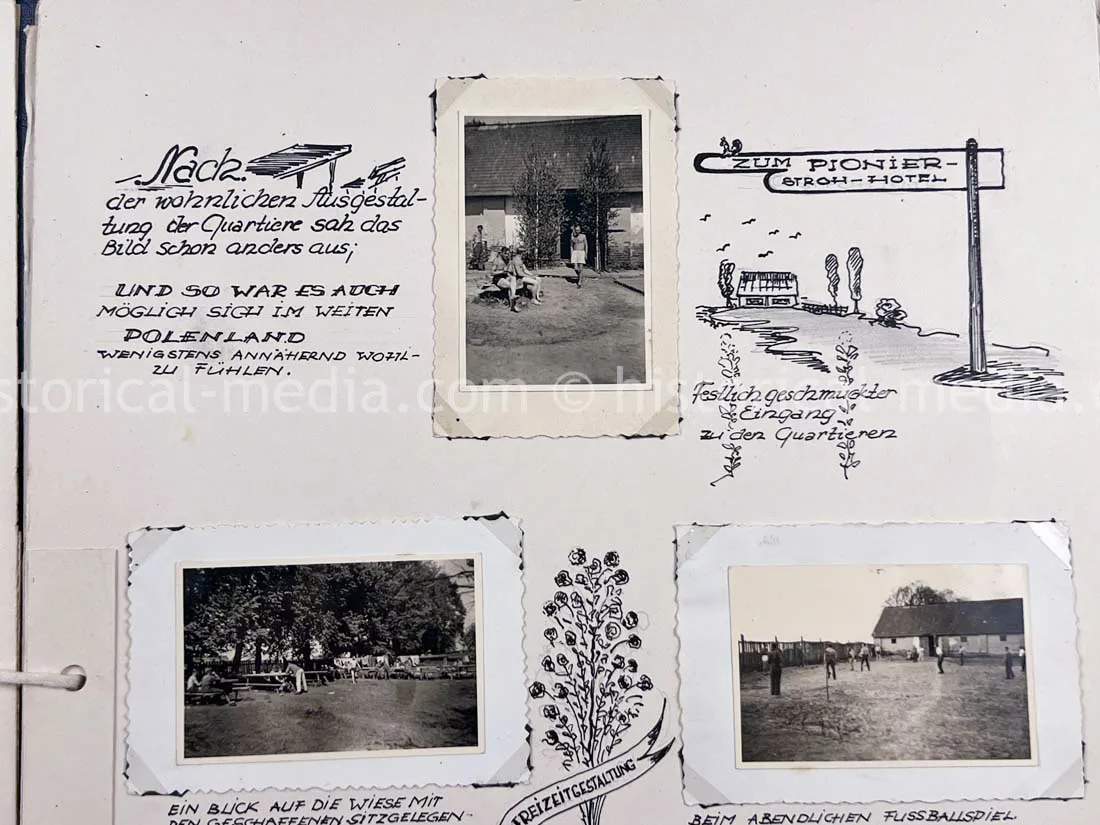 Nach
der wohnlichen Ausgestal-
tung der Quartiere sah das
Bild schon anders aus;
UND SO WAR ES AUCH
MÖGLICH SICH IM WEITEN
POLENLAND
WENIGSTENS ANNÄHERND WOHL-
ZU FÜHLEN.
ZUM PIONIER-
STROH-HOTEL
Festlich geschmückter
Eingang
zu den Quartieren
historical-media.com © historical-media.com ©
EIN BLICK AUF DIE WIESE MIT
DEN GESCHAFFENEN SITZGELEGEN-
FREIZEITGESTALTUNG
BEIM ABENDLICHEN FUSSBALLSPIEL.